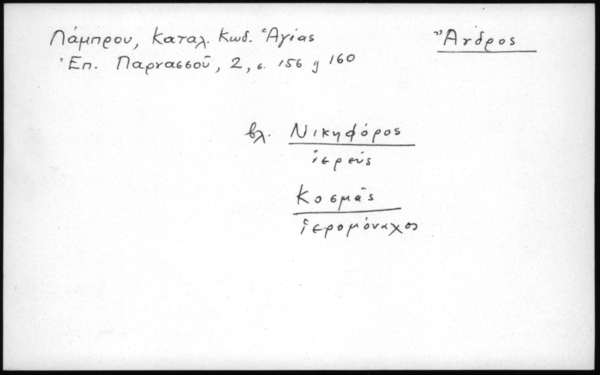 Λάμπρου, Καταλ. Κωδ. Ἁγίας
Ἐπ. Παρνασσοῦ, 2, σ. 156 160
Ἄνδρος
βλ. Νικηφόρος
ἱερεύς
Κοσμᾶς
ἱερομόναχος